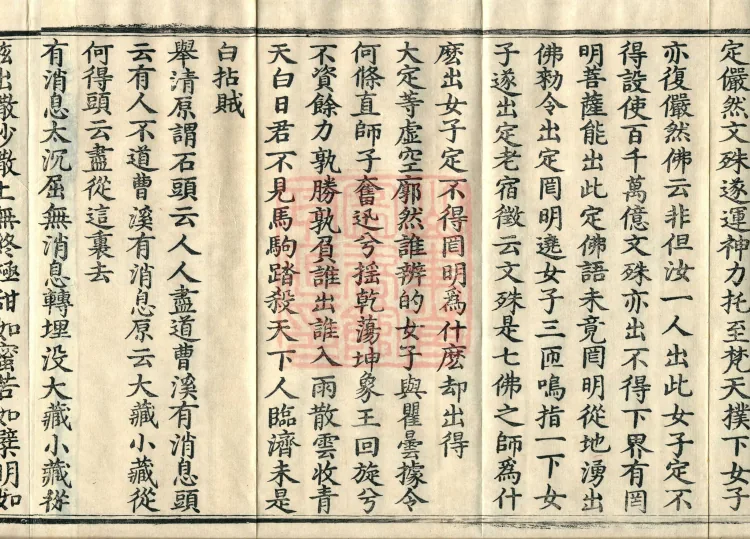 定儼然文殊遂運神力托至梵天撲下女子
亦復儼然佛云非但汝一人出此女子定不
得設使百千萬億文殊亦出不得下界有罔
明菩薩能出此定佛語未竟罔明從地湧出
佛勑令出定罔明遶女子三匝鳴指一下女
子遂出定老宿徵云文殊是七佛之師爲什
麽出女子定不得罔明爲什麽却出得
大定等虛空廓然誰辨的女子與瞿曇據令
何條直師子奮迅兮揺乾蕩坤象王回旋兮
不資餘力孰勝孰負誰出誰入雨散雲收青
天白日君不見馬駒踏殺天下人臨濟未是
白拈賊
舉清原謂石頭云人人盡道曹溪有消息頭
云有人不道曹溪有消息原云大藏小藏從
何得頭云盡從這裏去
有消息太沉屈無消息轉埋没大藏小藏從
出散沙散土無終極甜如蜜苦如蘗明如